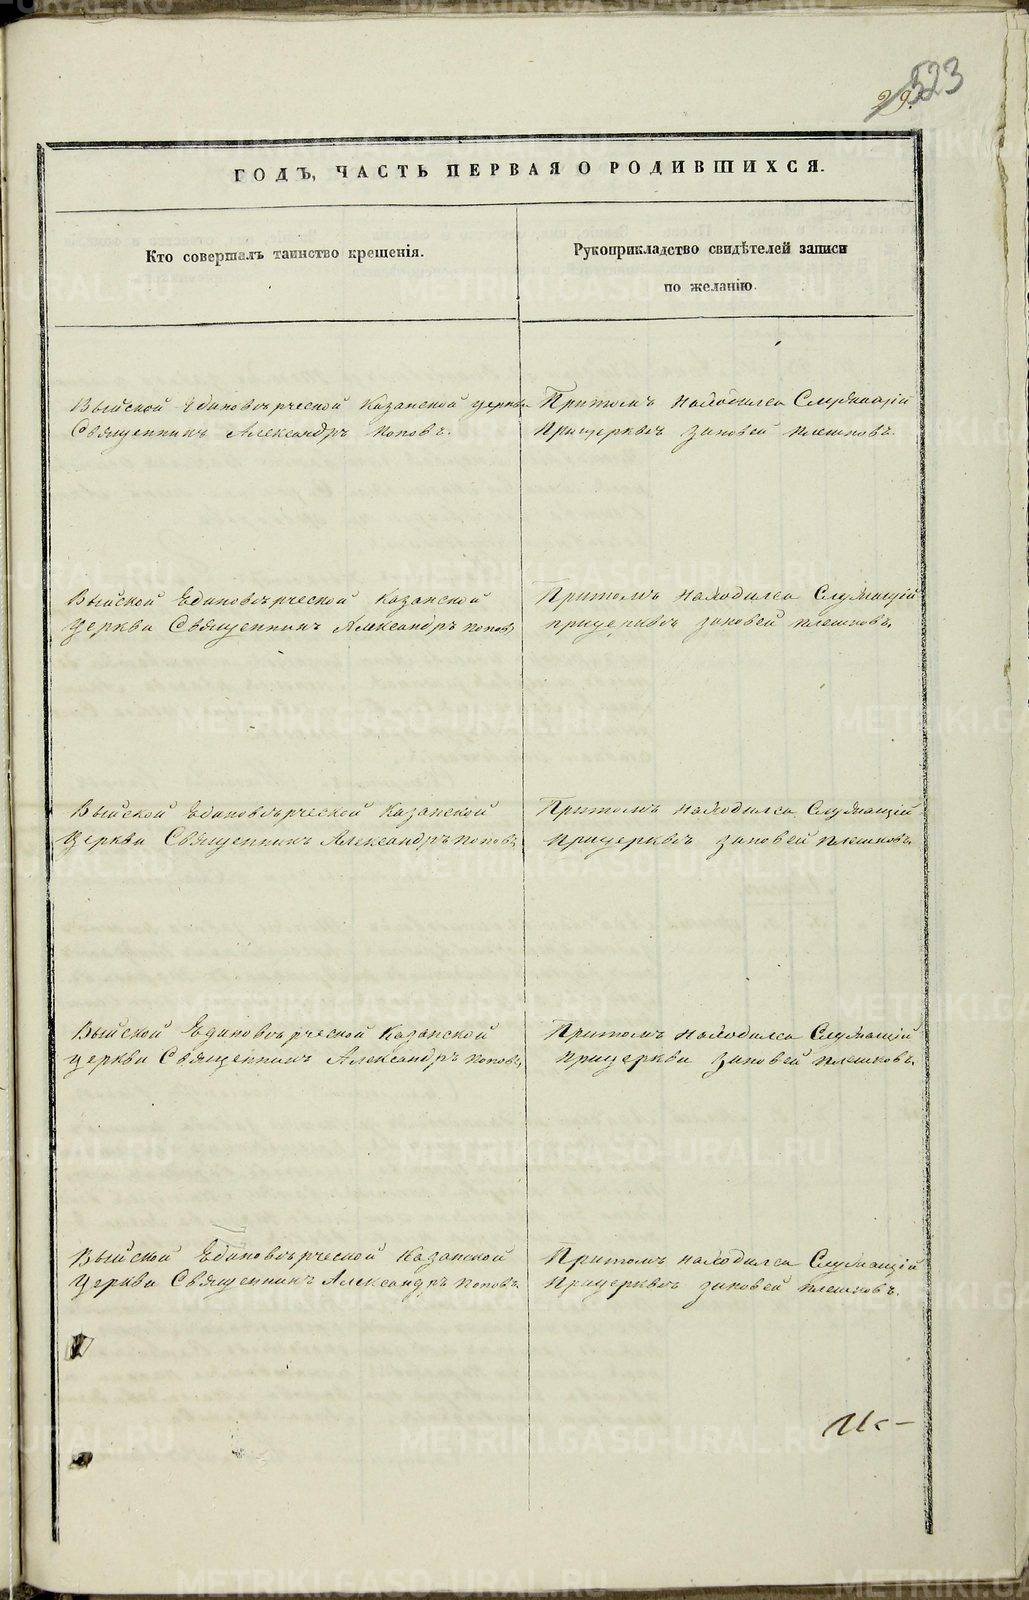 523
29.
ГОДЪ, ЧАСТЬ ПЕРВАЯ О РОДИВШИХСЯ.
Кто совершалъ таинство крещенія.
Рукоприкладство свидѣтелей записи
по желанію.
Выйской Единовѣрческой Казанской церкви
Священникъ Александръ Поповъ.
Притомъ находился Служащій
Прицерквѣ Зиновей Плешковъ.
Выйской Единовѣрческой Казанской
Церкви Священникъ Александръ Поповъ
Притомъ находился Служащій
прицерквѣ Зиновей Плешковъ.
Выйской Единовѣрческой Казанской
Церкви Священникъ Александръ Поповъ
Притомъ находился Служащій
Прицерквѣ Зиновей Плешковъ.
Выйской Единовѣрческой Казанской
Церкви Священникъ Александръ Поповъ
Притомъ находился Служащій
Прицеркви Зиновей Плешковъ.
Выйской Единовѣрческой Казанской
Церкви Священникъ Александръ Поповъ
Притомъ находился Служащій
Прицерквѣ Зиновей Плешковъ.
METRIKI.GASO-URAL.RU